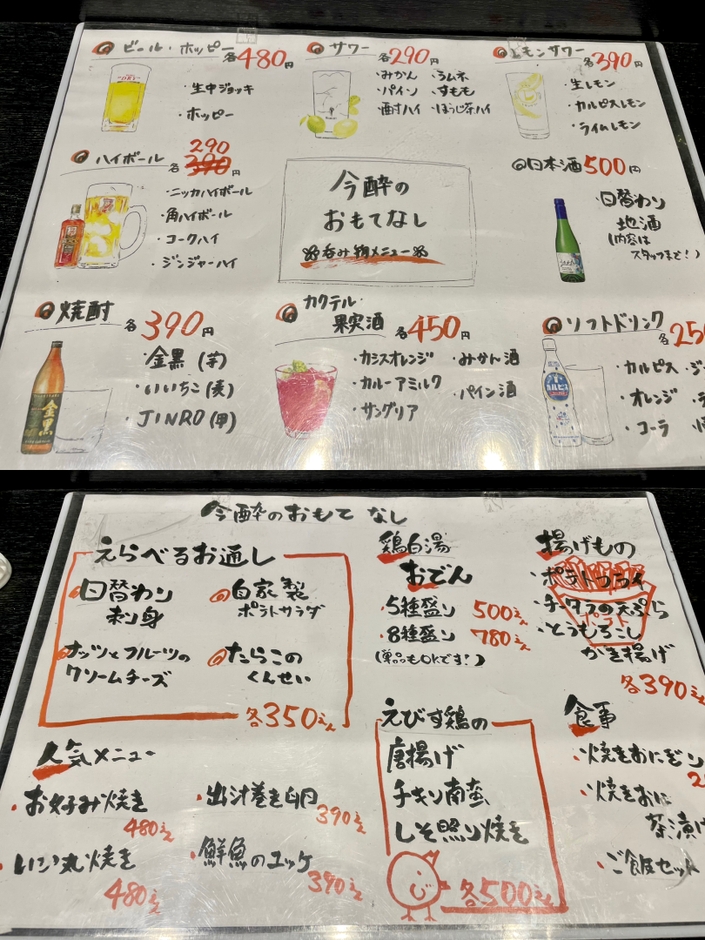 ビール・ホッピー 各480円
・生中ジョッキ
・ホッピー
サワー 各290円
・みかん ・ラムネ
・パイン ・すもも
・酎ハイ ・ほうじ茶ハイ
レモンサワー 各390円
・生レモン
・カルピスレモン
・ライムレモン
ハイボール 各390 290
・ニッカハイボール
・角ハイボール
・コークハイ
・ジンジャーハイ
今酔の
おもてなし
呑み物メニュー
日本酒500円
・日替わり
地酒
(内容は
スタッフまで!)
焼酎 各390円
・金黒(芋)
・いいちこ(麦)
・JINRO(甲)
カクテル・
果実酒 各450円
・カシスオレンジ ・みかん酒
・カルーアミルク ・パイン酒
・サングリア
ソフトドリンク 各250
・カルピス ・ジ
・オレンジ
・コーラ
今酔のおもてなし
えらべるお通し
日替わり
刺身
自家製
ポテトサラダ
ナッツとフルーツの
クリームチーズ
たらこの
くんせい
各350えん
鶏白湯
おでん
・5種盛り 500えん
・8種盛り 780えん
(単品もOKです!)
揚げもの
・ポテトフライ
・チータラの天ぷら
・とうもろこし
かき揚げ
各390えん
人気メニュー
・お好み焼き
480えん
・出汁巻き卵
390えん
480えん
・鮮魚のユッケ
390えん
えびす鶏の
唐揚げ
チキン南蛮
しそ照り焼き
各500えん
食事
・焼きおにぎり
・焼きおに
茶漬け
・ご飯セット